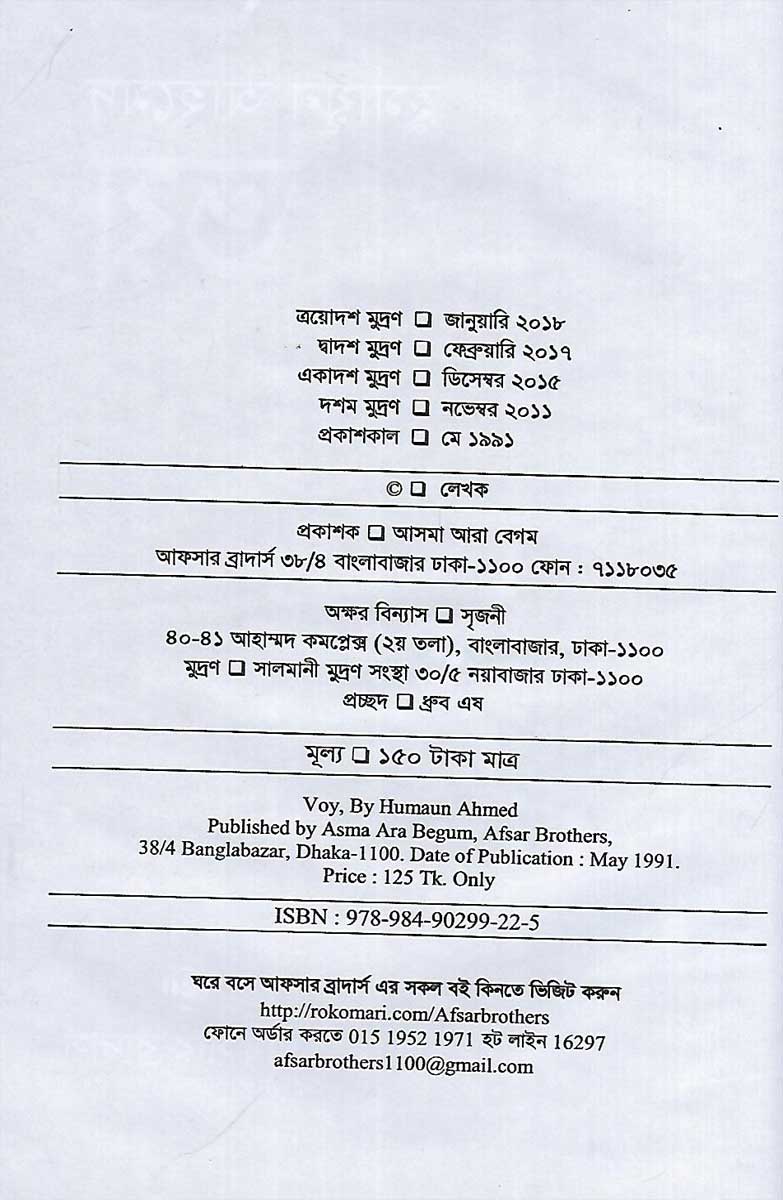 ত্রয়োদশ মুদ্রণ ❏ জানুয়ারি ২০১৮
দ্বাদশ মুদ্রণ ❏ ফেব্রুয়ারি ২০১৭
একাদশ মুদ্রণ ❏ ডিসেম্বর ২০১৫
দশম মুদ্রণ ❏ নভেম্বর ২০১১
প্রকাশকাল ❏ মে ১৯৯১
© ❏ লেখক
প্রকাশক ❏ আসমা আরা বেগম
আফসার ব্রাদার্স ৩৮/৪ বাংলাবাজার ঢাকা-১১০০ ফোন : ৭১১৮০৩৫
অক্ষর বিন্যাস ❏ সৃজনী
৪০-৪১ আহাম্মদ কমপ্লেক্স (২য় তলা), বাংলাবাজার, ঢাকা-১১০০
মুদ্রণ ❏ সালমানী মুদ্রণ সংস্থা ৩০/৫ নয়াবাজার ঢাকা-১১০০
প্রচ্ছদ ❏ ধ্রুব এষ
মূল্য ❏ ১৫০ টাকা মাত্র
Voy, By Humaun Ahmed
Published by Asma Ara Begum, Afsar Brothers,
38/4 Banglabazar, Dhaka-1100. Date of Publication : May 1991.
Price : 125 Tk. Only
ISBN : 978-984-90299-22-5
ঘরে বসে আফসার ব্রাদার্স এর সকল বই কিনতে ভিজিট করুন
http://rokomari.com/Afsarbrothers
ফোনে অর্ডার করতে 015 1952 1971 হট লাইন 16297
afsarbrothers1100@gmail.com